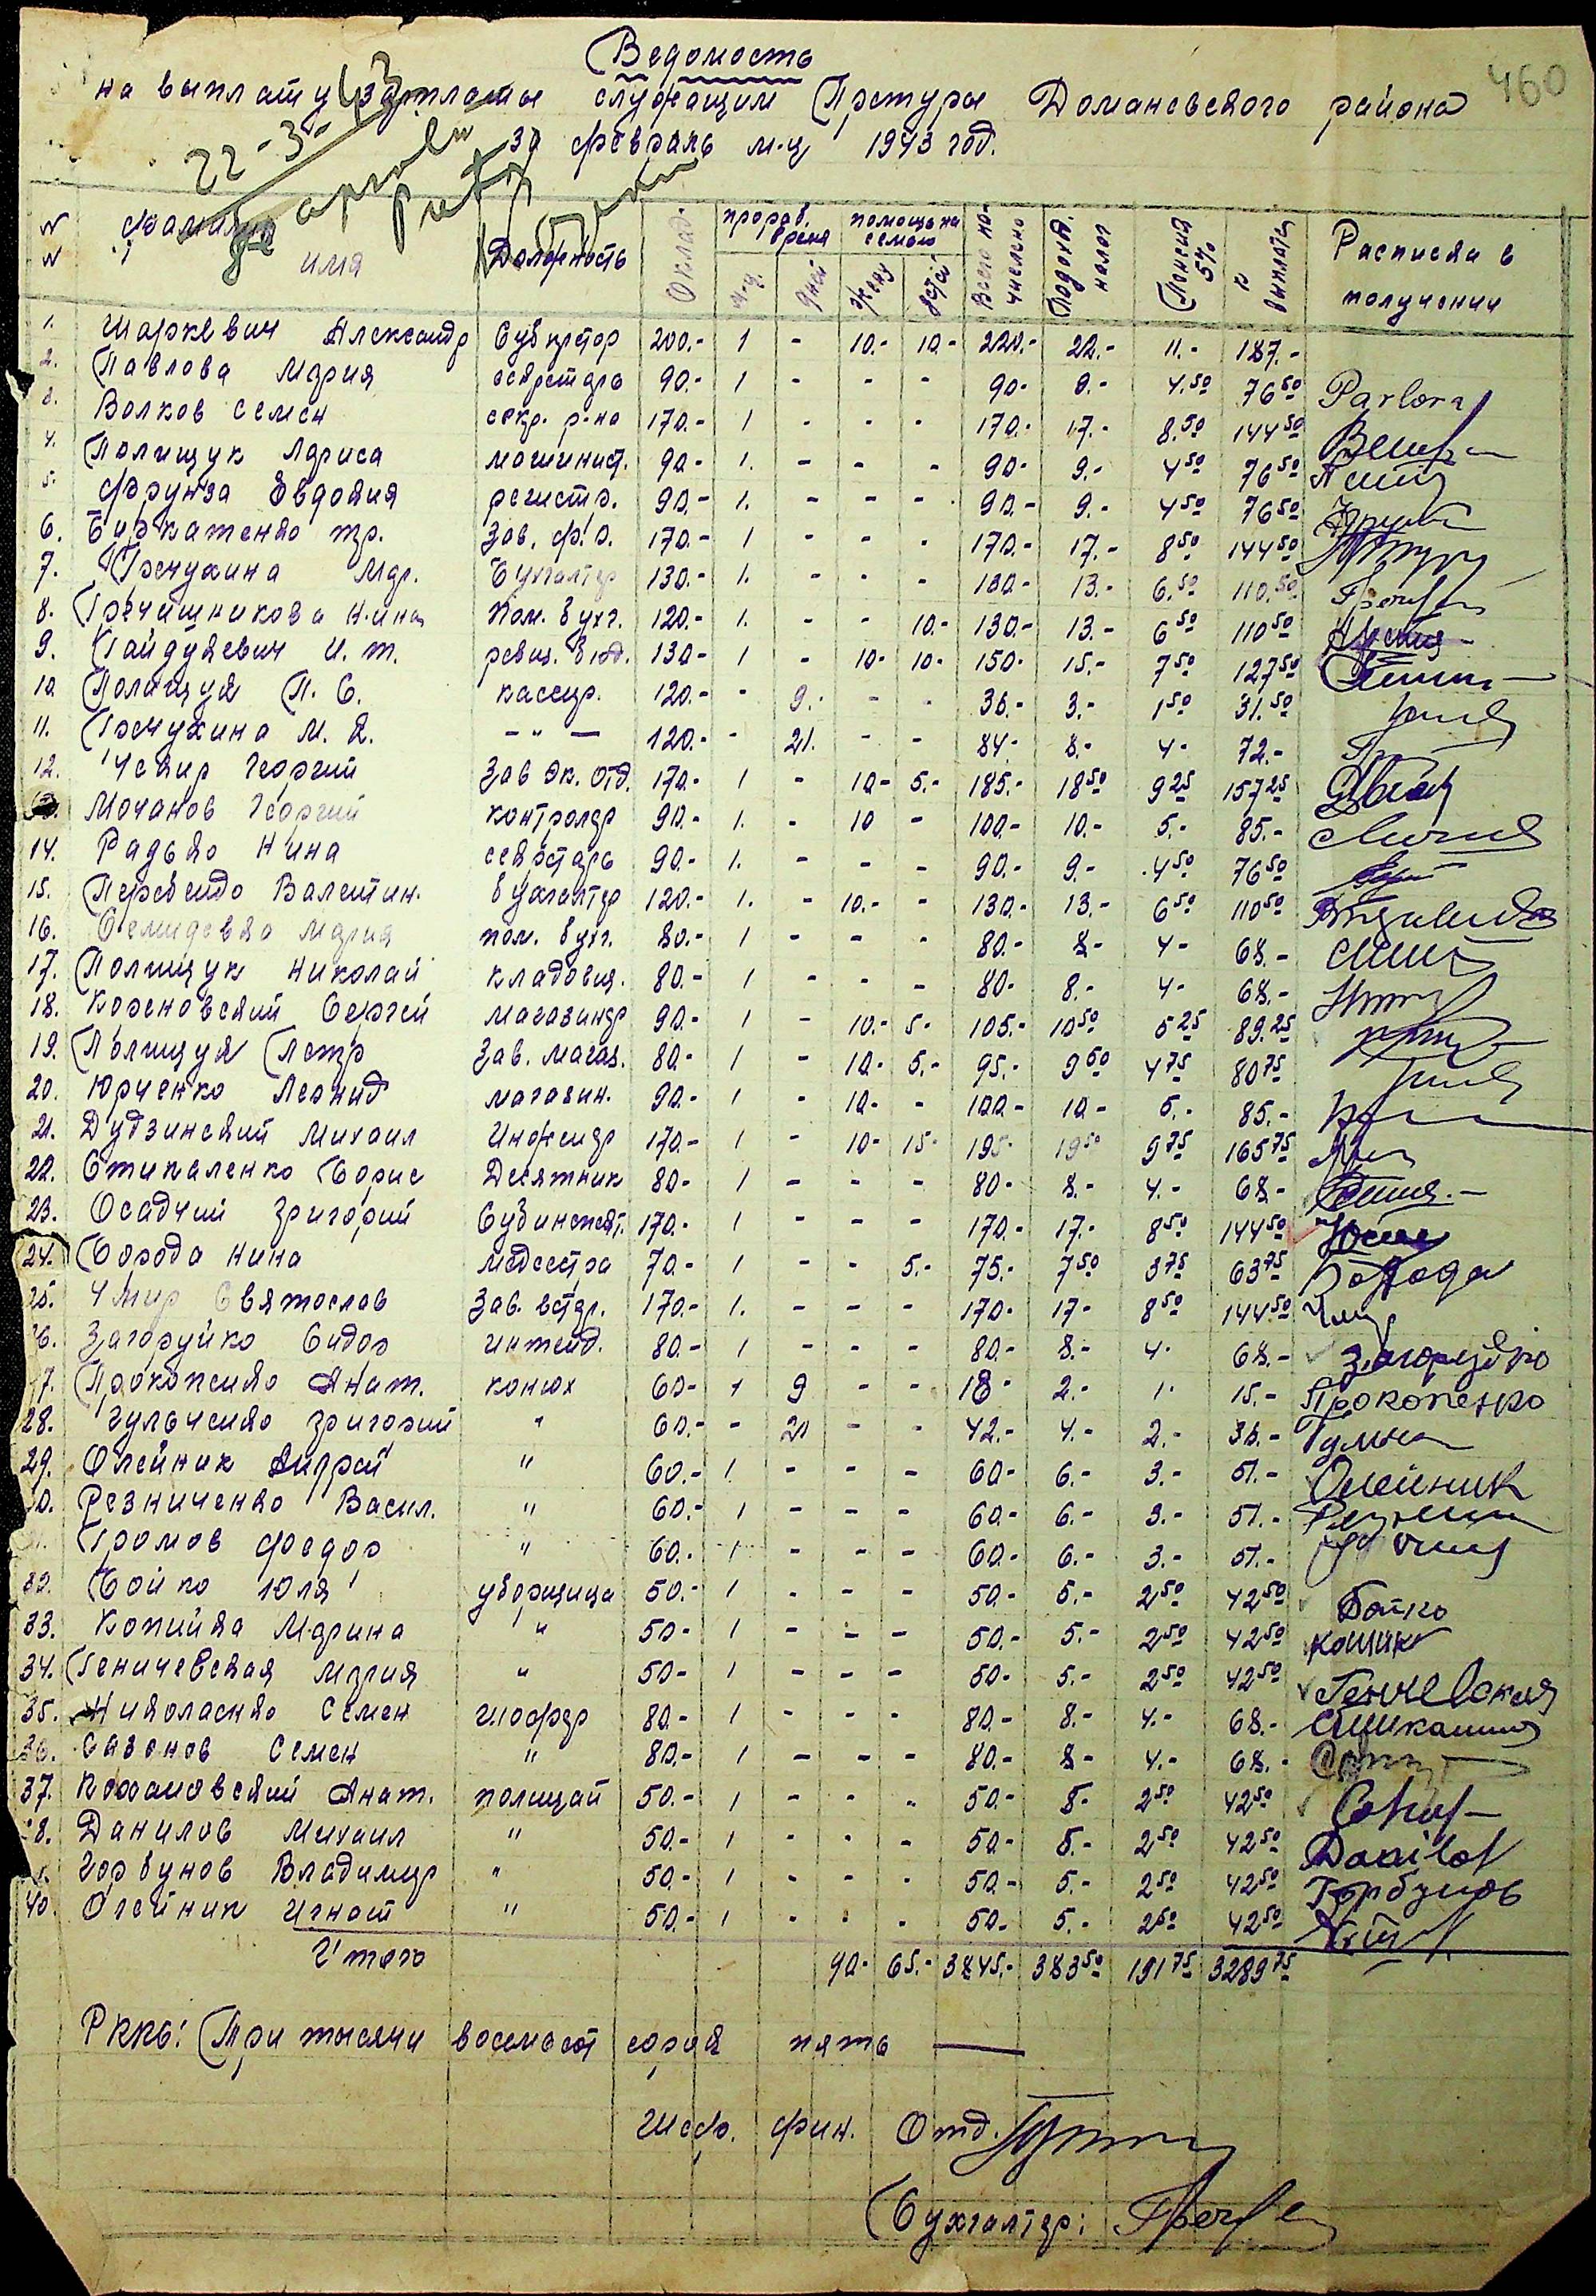 460
Ведомость
на выплату зарплаты служащим Претуры Домановского района
за февраль м-ц 1943 год.
22-3
N N Фамилия имя Должность Оклад прораб. время м-ц. дней помощь на семью жену детей Всего начислено Подоход. налог Пенсия 5% к выплате Расписка в получении
1. Шаркевич Александр Субпретор 200.- 1 - 10.- 10.- 220.- 22.- 11.- 187.-
2. Павлова Мария секретарь 90.- 1 - - - 90.- 9.- 4.50 76 50 Parlova
3. Волков Семен секр. р-на 170.- 1 - - - 170.- 17.- 8.50 144 50
4. Полищук Лариса машинист. 90.- 1. - - - 90.- 9.- 4 50 76 50
5. Фрунза Евдокия регистр. 90.- 1. - - - 90.- 9.- 4 50 76 50
6. Буркатенко тр. Зав. ф.о. 170.- 1 - - - 170.- 17.- 8 50 144 50
7. Гречухина Мар. Бухгалтер 130.- 1. - - - 130.- 13.- 6.50 110.50
8. Гречишникова Нина Пом. бухг. 120.- 1. - - 10.- 130.- 13.- 6 50 110 50
9. Гайдукевич И. т. ревиз. 130- 1 - 10- 10- 150- 15.- 7 50 127 50
10 Полищук П. С. кассир. 120.- - 9. - - 36.- 3.- 1 50 31.50
11. Гречухина М. Д. -"- 120.- - 21. - - 84.- 8.- 4- 72.-
12. Чебир Георгий Зав эк. отд. 170.- 1 - 10- 5.- 185.- 18 50 9 25 157 25
Мочанов Георгий контролер 90.- 1. - 10 - 100.- 10.- 5.- 85.-
14. Радько Нина секретарь 90.- 1. - - - 90.- 9.- 4 50 76 50
15. Перебейдо Валентин. бухгалтер 120.- 1. - 10.- - 130.- 13.- 6 50 110 50
16. Мария пом. бухг. 80.- 1 - - - 80.- 8- 4- 68.-
17. Полищук Николай кладовщ. 80.- 1 - - - 80- 8.- 4- 68.-
18. Кореновский Сергей магазинер 90.- 1 - 10.- 5- 105.- 10 50 5 25 89.25
19. Полищук Петр Зав. магаз. 80.- 1 - 10- 5.- 95.- 9 50 4 75 80 75
20. Юрченко Леонид магазин. 90.- 1 - 10- - 100.- 10- 5.- 85.-
21. Дудзинский Михаил Инженер 170.- 1 - 10- 15- 195- 19 50 9 75 165 75
22. Стипаленко Борис Десятник 80- 1 - - - 80- 8.- 4.- 68-
23. Осадчий Григорий Субинспект. 170.- 1 - - - 170.- 17.- 8 50 144 50
24. Борода Нина медсестра 70.- 1 - - 5.- 75.- 7 50 3 75 63 75 Борода
25. Чмир Святослав Зав. ветер. 170.- 1. - - - 170- 17- 8 50 144.50 Чмир
26. Загоруйко Сидор интенд. 80.- 1 - - - 80.- 8.- 4- 68.- Загоруйко
27. Прокопенко Анат. конюх 60- 1 9 - - 18- 2.- 1- 15.- Прокопенко
28. Гульченко Григорий " 60.- - 21 - - 42.- 4.- 2.- 36.-
29. Олейник Андрей " 60.- 1. - - - 60- 6.- 3.- 51.- Олейник
30. Резниченко Васил. " 60.- 1 - - - 60.- 6.- 3.- 51.-
31. Громов Федор " 60.- 1 - - - 60.- 6.- 3.- 51.-
32. Бойко Юля уборщица 50.- 1 - - - 50.- 5.- 2 50 42 50 Бойко
33. Копийка Марина " 50- 1 - - - 50.- 5.- 2 50 42 50
34. Геничевская Мария " 50- 1 - - - 50- 5.- 2 50 42 50
35. Николаенко Семен шофер 80.- 1 - - - 80.- 8.- 4.- 68.-
36. Сазонов Семен " 80.- 1 - - - 80.- 8- 4.- 68.-
37. Кохановский Анат. полицай 50.- 1 - - - 50.- 5- 2 50 42 50
38. Данилов Михаил " 50.- 1 - - - 50.- 5.- 2 50 42 50 Danilof
39. Горбунов Владимир " 50.- 1 - - - 50.- 5.- 2 50 42 50 Горбунов
40. Олейник Игнат " 50.- 1 - - - 50- 5.- 2 50 42 50
Итого 90.- 65.- 3845.- 383 50 191 75 3289 75
РККС: Три тысячи восемьсот сорок пять
Шеф. фин. Отд.
Бухгалтер: